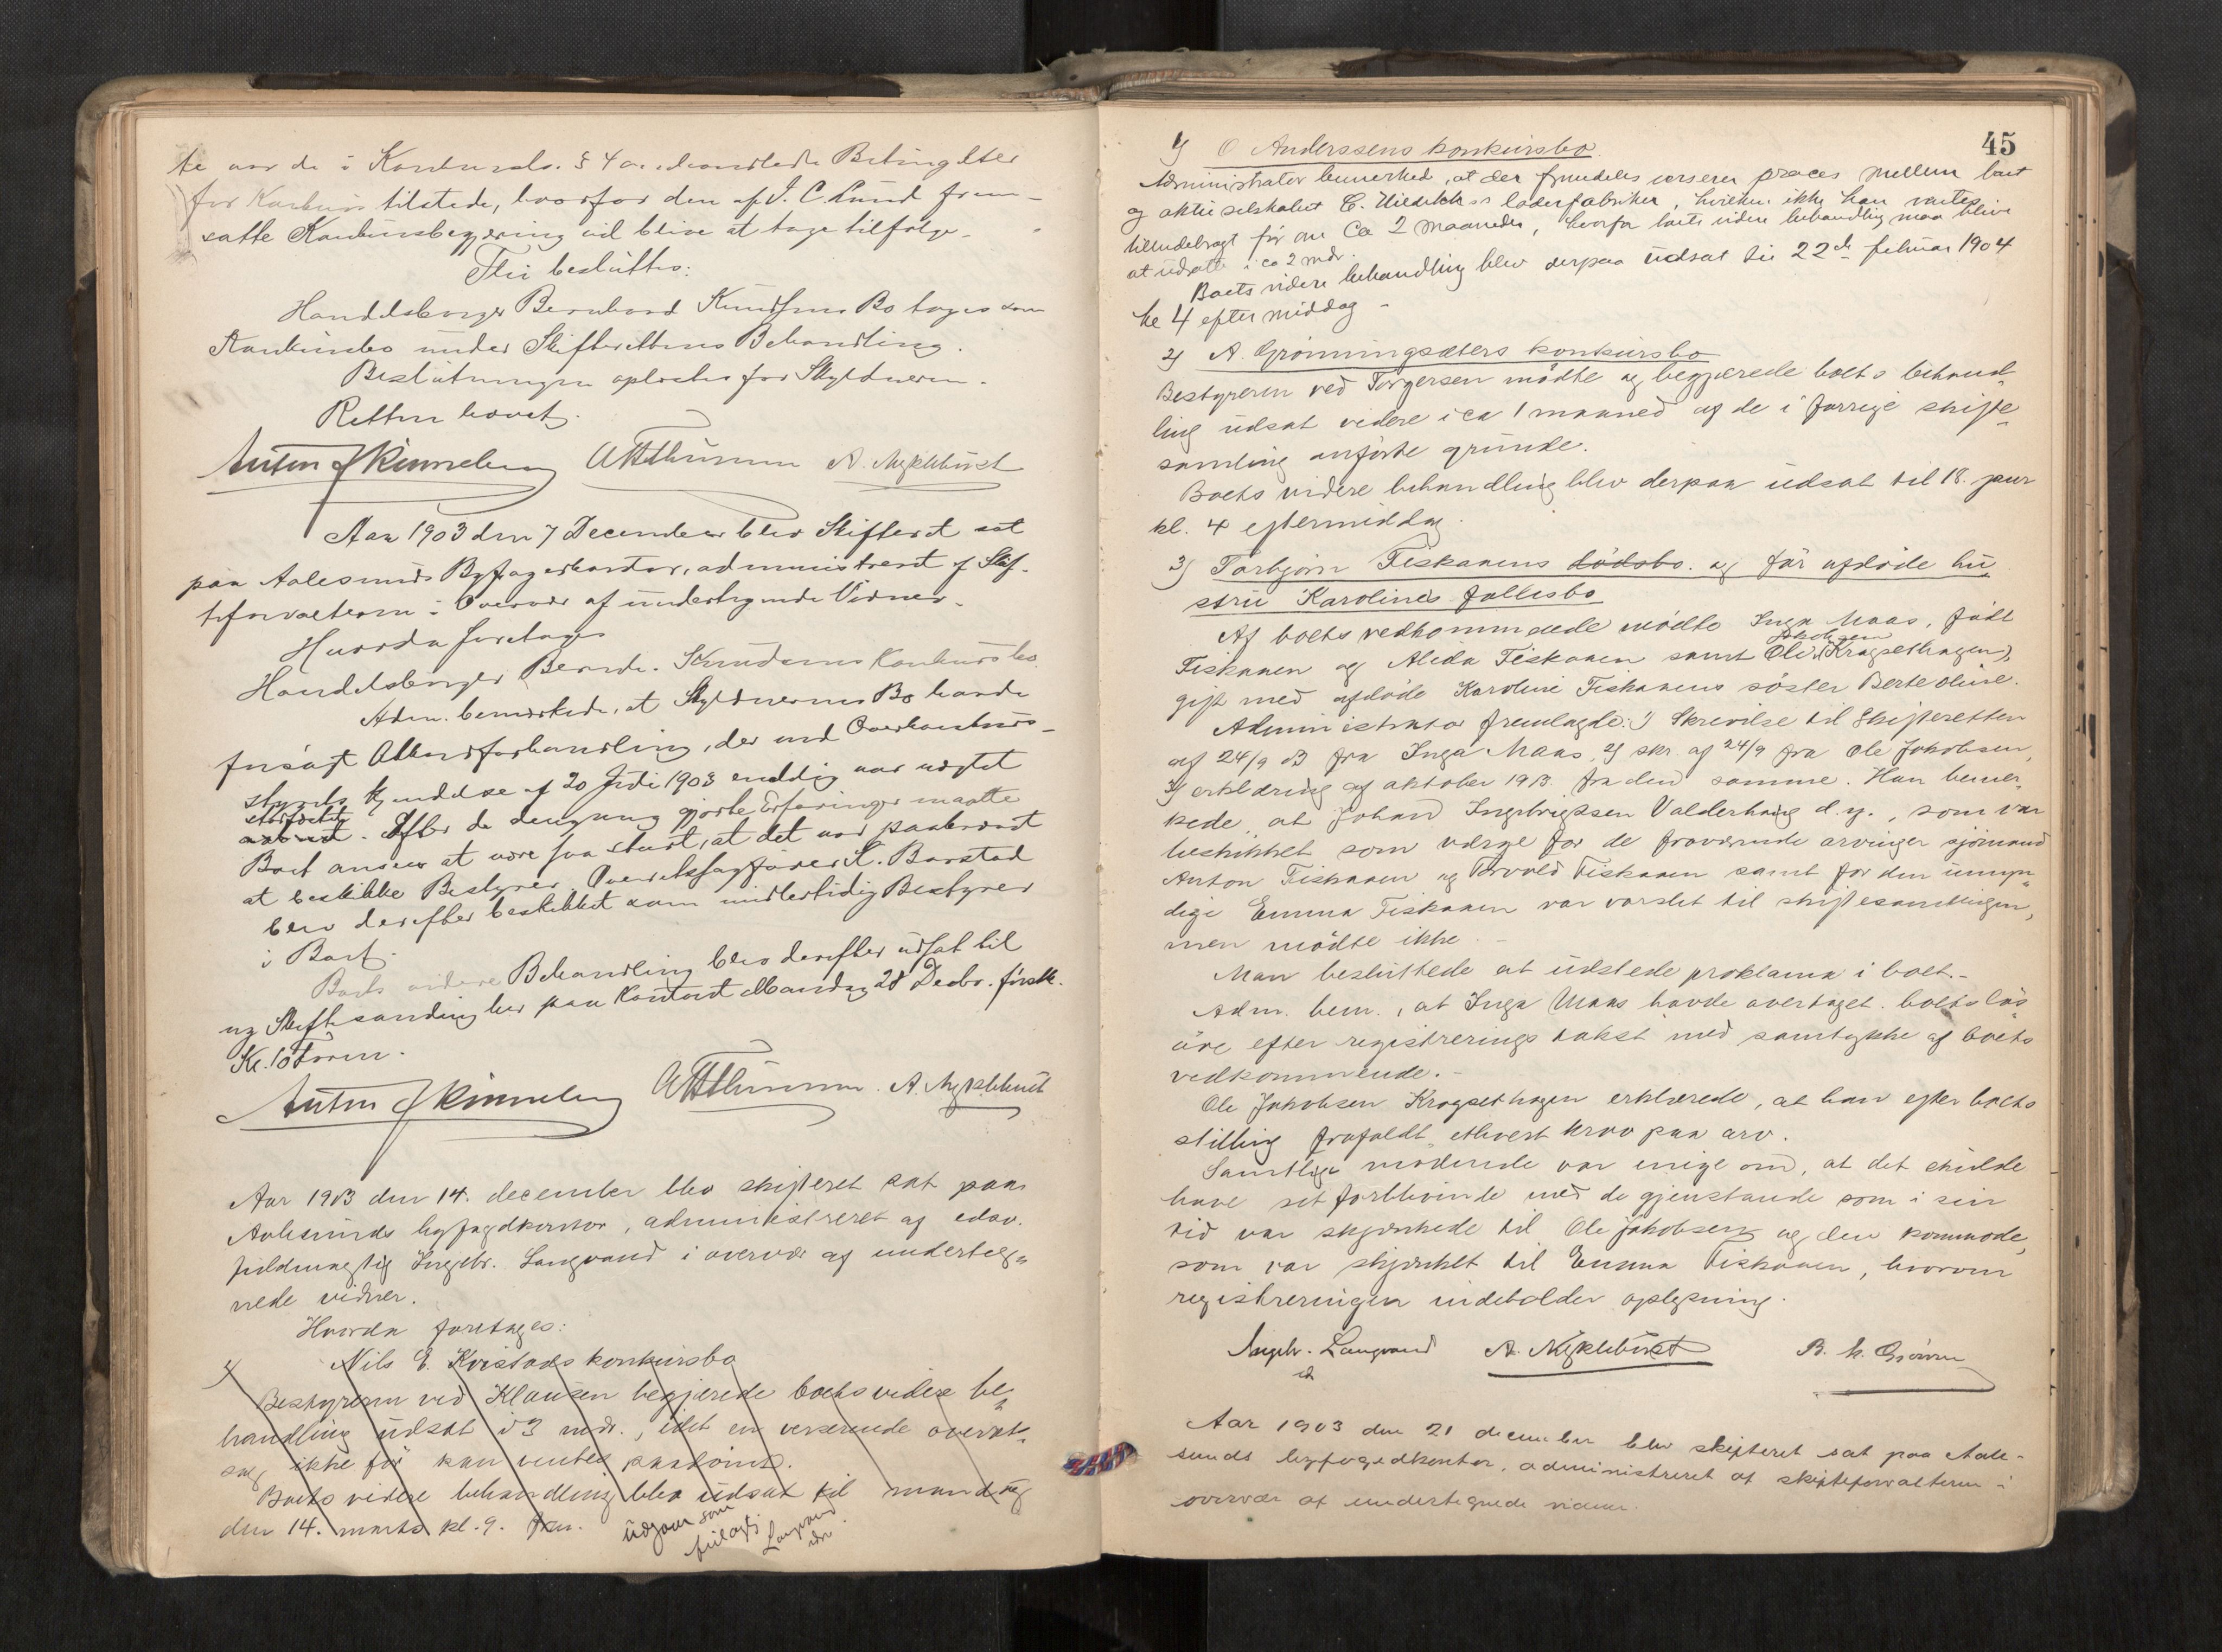 te var de i Konkursl. § 4 omhandlede Betingelser
for Konkurs tilstede, hvorfor den af J. C. Lund frem-
satte Konkursbegjæring vil blive at tage tilfølge.
Thi besluttes:
Handelsborger Bernhard Knudsens Bo tages som
Konkursbo under Skifterettens Behandling.
Beslutningen oplæstes for Skyldneren.
Retten hævet.
A. Myklebust
Aar 1903 den 7 December blev Skifteret sat
paa Aalesunds Byfogedkontor, administreret af Skif-
teforvalteren i Overvær af undertegnede Vidner.
Hvorda foretages
Handelsborger Bernh. Knudsens Konkursbo.
Adm. bemærkede, at Skyldnerens Bo havde
forsøgt Akkordforhandling, der ved Overkonkurs-
styrets Kjendelse af 20 Juli 1903 endelig var nægtet
stadfæstet. Efter de dengang gjorte Erfaringer maatte
Boet ansees at være saa stort, at det var paakrævet
at beskikke Bestyrer. Overretssagfører K. Barstad
blev derefter beskikket som midlertidig Bestyrer
i Boet.
Boets videre Behandling blev derefter udsat til
ny Skiftesamling her paa Kontoret Mandag 28 Decbr. førstk.
Kl. 10 Form.
A. Myklebust
Aar 1903 den 14. december blev skifteret sat paa
Aalesunds byfogdkontor, administreret af edsv.
fuldmægtig Ingebr. Langvand i overvær af undertegn„
nede vidner.
Hvorda foretages:
1) Nils E. Kvistads konkursbo
Bestyreren ved Klausen begjærede boets videre be„
handling udsat i 3 mdr., idet en verserende overrets„
sag ikke før kan ventes paadømt.
Boets videre behandling blev udsat til mandag
den 14. marts kl. 9. fm.
udgaar som
Langvand
45
1) O Anderssens konkursbo.
Administrator bemerked, at der fremdeles verserer proces mellem boet
og aktieselskabet C. Hiedelchs læderfabriker, hvilken ikke kan ventes
tilendebragt før om ca 2 maaneder, hvorfor boets videre behandling maa blive
at udsætte i ca 2 mdr.
Boets videre behandling blev derpaa udsat til 22de februar 1904
kl 4 eftermiddag -
2) A. Grønningsæters konkursbo
Bestyreren ved Torgersen mødte og begjærede boets behand„
ling udsat videre i ca 1 maaned af de i forrige skifte„
samling anførte grunde.
Boets videre behandling blev derpaa udsat til 18. januar
kl. 4 eftermiddag.
3) Torbjørn Fiskaaens dødsbo. og før afdøde hu„
stru Karolines fællesbo
Af boets vedkommende mødte Inga Maas, født
Fiskaaen og Alida Fiskaaen samt Ole Jakobsen (Kragsethagen),
gift med afdøde Karoline Fiskaaens søster Berteoline.
Administrator fremlagde: 1) Skrivelse til Skifteretten
af 24/9 03 fra Inga Maas, 2) skr. af 24/9 fra Ole Jakobsen,
3) erklæring af oktober 1903 fra den samme. Han bemer„
kede, at Johan Ingebrigtsen Valderhaug d.y., som var
beskikket som værge for de fraværende arvinger sjømand
Anton Fiskaaen og Torvald Fiskaaen samt for den umyn„
dige Emma Fiskaaen var varslet til skiftesamlingen,
men mødte ikke. -
Man besluttede at udstede proklama i boet. -
Adm. bem., at Inga Maas havde overtaget boets løs„
øre efter registrerings takst med samtykke af boets
vedkommende. -
Ole Jakobsen Kragsethagen erklærede, at han efter boets
stilling frafaldt ethvert krav paa arv.
Samtlige mødende var enige om, at det skulde
have sit forblivende med de gjenstande som i sin
tid var skjænkede til Ole Jakobsen og den kommode,
som var skjænket til Emma Fiskaaen, hvorom
registreringen indeholder oplysning.
Ingebr. Langvand A. Myklebust
Aar 1903 den 21 december blev skifteret sat paa Aale-
sunds byfogedkontor, administreret af skifteforvalteren i
overvær af undertegnede vidner.